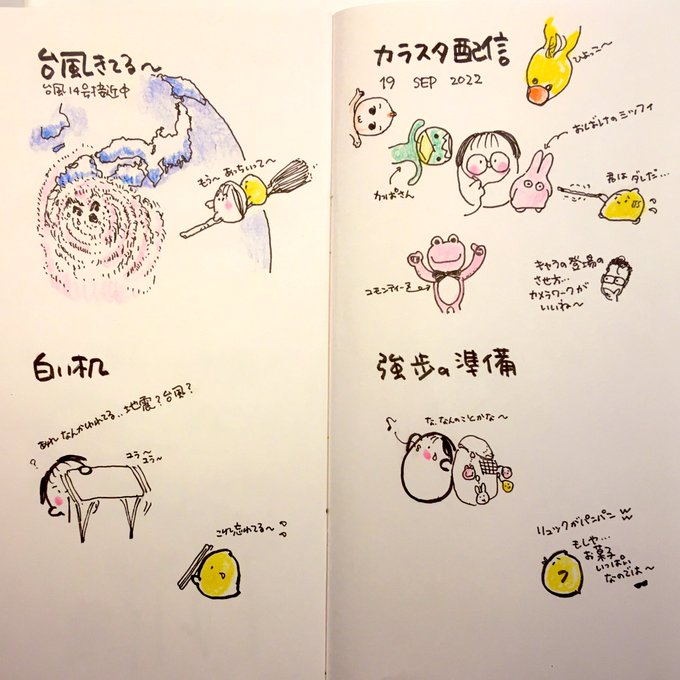 台風きてる〜
台風14号接近中
もう〜あっちいって〜
白い机
あれなんかゆれてる..地震？台風？
?
ユラ〜
ユラ〜
これ忘れてる〜
カラスタ配信
19 SEP 2022
ひよっこ〜
おしばいさのミッフィ
かっぱさん
君はダレだ…
コモンティーを
キャラの登場の
させ方…
カメラワークが
いいね〜
強歩の準備
な、なんのことかな〜
リュックがパンパン
もしや…
お菓子
いっぱい
なのでは〜